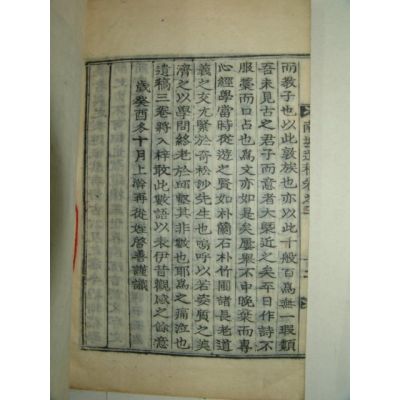 遺稿卷之三
而敎子也以此敦族也亦以此千般百爲無一瑕纇
吾未見古之君子而意者大槩近之矣平日作詩不
服藁而口占也爲文亦如是矣屢擧不中晩棄而專
心經學當時從遊之賢如朴蘭石朴竹圃諸長老道
義之交尤緊於奇松沙先生也嗚呼以若姿質之美
濟之以學問終老於師其非數也耶爲之痛泣也
遺稿三卷將入梓敢此數語以伊昔觀感之餘意
歲癸酉冬十月上澣再從姪營善謹識